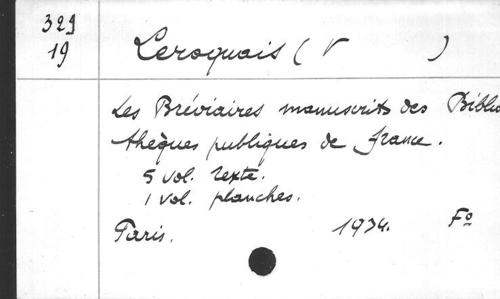 329
19
Leroquais (V )
Les Bréviaires manuscrits des Biblio
thèques publiques de France.
5 vol. texte.
1 vol. planches.
Paris. 1934. Fº